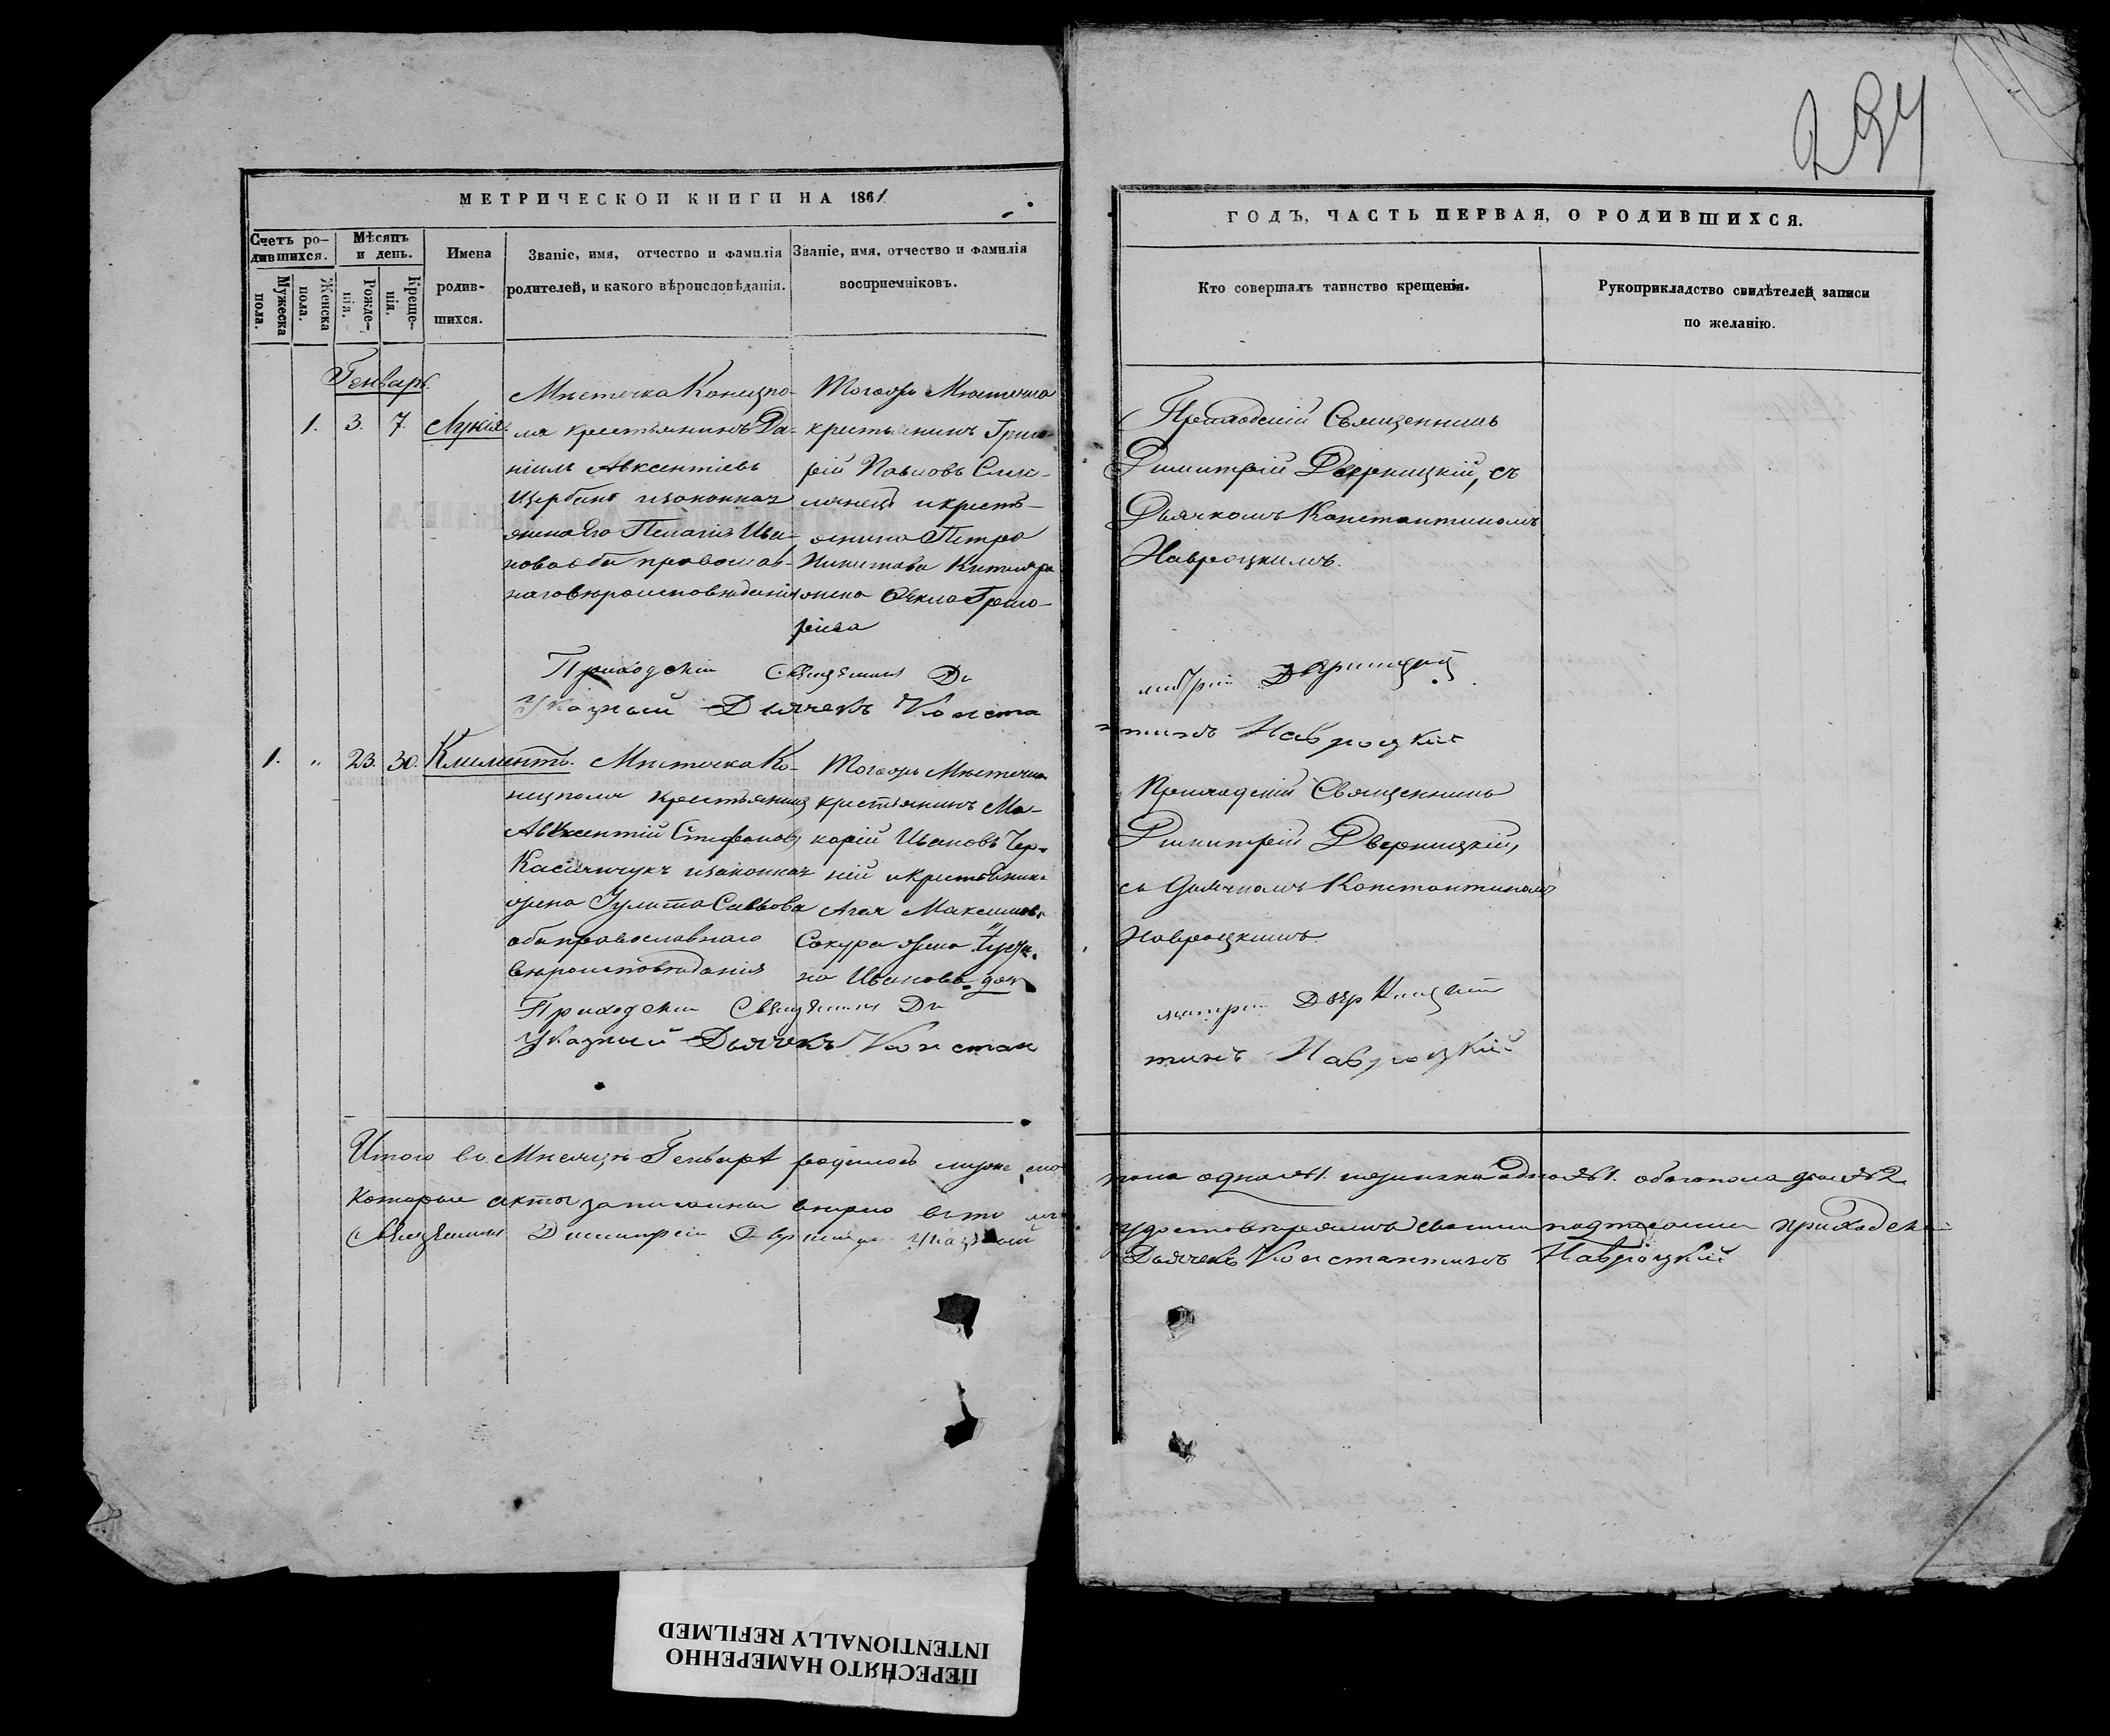 294
МЕТРИЧЕСКОЙ КНИГИ НА 1861
ГОДЪ, ЧАСТЬ ПЕРВАЯ, О РОДИВШИХСЯ.
Счетъ ро-
дившихся.
Мужеска
пола.
Женска
пола.
Мѣсяцъ
и день.
Рожде-
нія.
Креще-
нія.
Имена
родив-
шихся.
Званіе, имя, отчество и фамилія
родителей, и какого вѣроисповѣданія.
Званіе, имя, отчество и фамилія
воспріемниковъ.
Кто совершалъ таинство крещенія.
Рукоприкладство свидѣтелей записи
по желанію.
Генварь
1. 3. 7. Лукія.
Мѣстечка Конецпо-
ля крестьянинъ Да-
ніилъ Авксентіевъ
Щербина и законная
жена его Пелагія Ива-
нова оба православ-
наго вѣроисповѣданія
Тогожъ Мѣстечка
крестьянинъ Григо-
рій Павловъ
и кресть-
янина Петра
Никитова
жена Ѳекла Григо-
ріева
Приходскій Священникъ
Димитрій Дверницкій, съ
Дьячкомъ Константиномъ
Навроцкимъ.
Приходскій Священникъ Ди
митрій Дверницкій
Указный Дьячекъ Конста
нтинъ Навроцкій
1. „ 23. 30. Климентъ.
Мѣстечка Ко-
нецполя крестьянинъ
Авксентій Стефановъ
Касіянчукъ и законная
жена Іулита Саввова
оба православнаго
вѣроисповѣданія
Тогожъ Мѣстечка
крестьянинъ Ма-
карій Ивановъ Чер-
ній и крестьянина
Максимов
Сокура жена
на Иванова
Приходскій Священникъ
Димитрій Дверницкій,
съ Дьячкомъ Константиномъ
Навроцкимъ.
Приходскій Священникъ Ди
митрій Дверницкій
Указный Дьячекъ Констан
тинъ Навроцкій
Итого въ Мѣсяцѣ Генварѣ родилось мужеска
пола одно № 1. и женска одно № 1. обоего пола два № 2
которые акты записаны вѣрно въ томъ
удостовѣряемъ своими подписами Приходскій
Священникъ Димитрій Дверницкій Указный
Дьячекъ Константинъ Навроцкій
ПЕРЕСНЯТО НАМЕРЕННО
INTENTIONALLY REFILMED